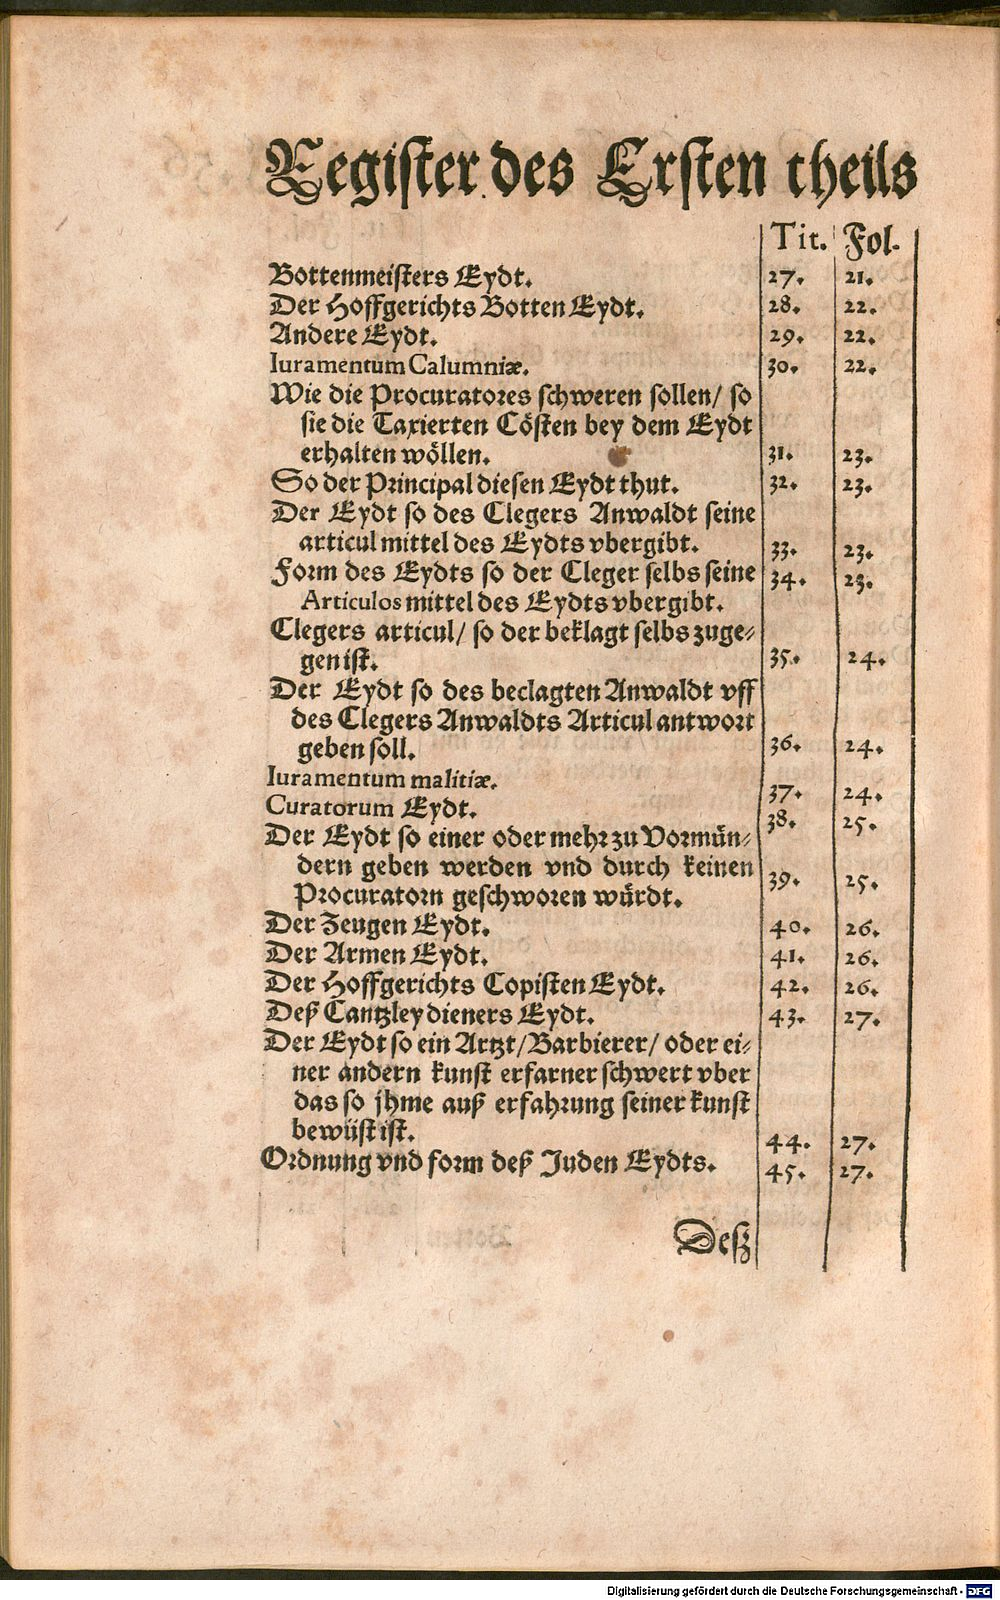 Register des Ersten theils
Tit. Fol.
Bottenmeisters Eydt. 27. 21.
Der Hoffgerichts Botten Eydt. 28. 22.
Andere Eydt. 29. 22.
Iuramentum Calumniæ. 30. 22.
Wie die Procuratores schweren sollen/ so
sie die Taxierten Cösten bey dem Eydt
erhalten wöllen. 31. 23.
So der Principal diesen Eydt thut. 32. 23.
Der Eydt so des Clegers Anwaldt seine
articul mittel des Eydts vbergibt. 33. 23.
Form des Eydts so der Cleger selbs seine 34. 23.
Articulos mittel des Eydts vbergibt.
Clegers articul/ so der beklagt selbs zuge⸗
gen ist. 35. 24.
Der Eydt so des beclagten Anwaldt vff
des Clegers Anwaldts Articul antwort
geben soll. 36. 24.
Iuramentum malitiæ. 37. 24.
Curatorum Eydt. 38. 25.
Der Eydt so einer oder mehr zu Vormün⸗
dern geben werden vnd durch keinen
Procuratorn geschworen würdt. 39. 25.
Der Zeugen Eydt. 40. 26.
Der Armen Eydt. 41. 26.
Der Hoffgerichts Copisten Eydt. 42. 26.
Deß Cantzley dieners Eydt. 43. 27.
Der Eydt so ein Artzt/ Barbierer/ oder ei⸗
ner andern kunst erfarner schwert vber
das so jhme auß erfahrung seiner kunst
bewüst ist. 44. 27.
Ordnung vnd form deß Juden Eydts. 45. 27.
Deß
Digitalisierung gefördert durch die Deutsche Forschungsgemeinschaft - DFG